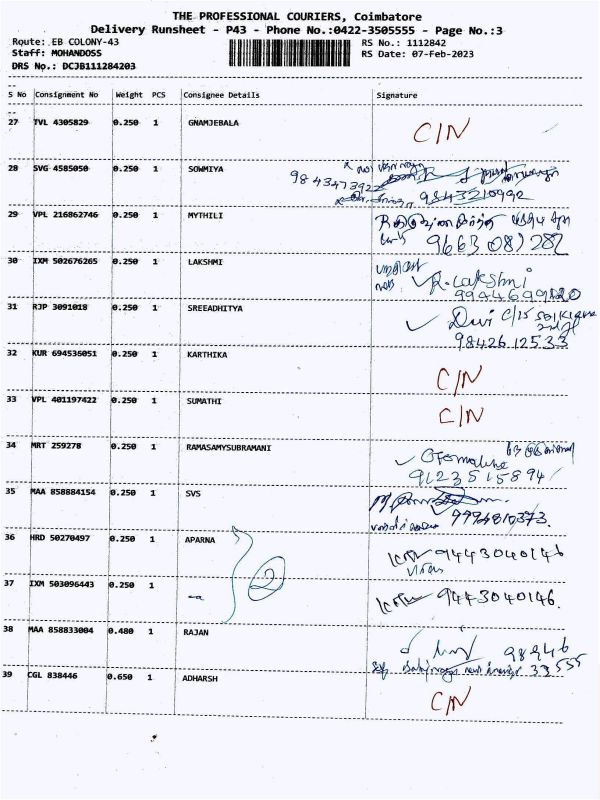 THE PROFESSIONAL COURIERS, Coimbatore
Delivery Runsheet - P43 - Phone No.:0422-3505555 - Page No.:3
Route: EB COLONY-43 RS No.: 1112842
Staff: MOHANDOSS RS Date: 07-Feb-2023
DRS No.: DCJB111284203
S No Consignment No Weight PCS Consignee Details Signature
27 TVL 4305829 0.250 1 GNAMJEBALA C/N
28 SVG 4585050 0.250 1 SOWMIYA
9843473922
9843210992
29 VPL 216862746 0.250 1 MYTHILI
9663 081 282
30 IXM 502676265 0.250 1 LAKSHMI
R. Lakshmi
9944699820
31 RJP 3091018 0.250 1 SREEADHITYA
Devi C/15
9842612533
32 KUR 694536051 0.250 1 KARTHIKA C/N
33 VPL 401197422 0.250 1 SUMATHI C/N
34 MRT 259278 0.250 1 RAMASAMYSUBRAMANI
9123515894
35 MAA 858884154 0.250 1 SVS
9994810373.
36 HRD 50270497 0.250 1 APARNA 9443040146
2
37 IXM 503096443 0.250 1 9443040146.
38 MAA 858833004 0.480 1 RAJAN
98946
33555
39 CGL 838446 0.650 1 ADHARSH C/N